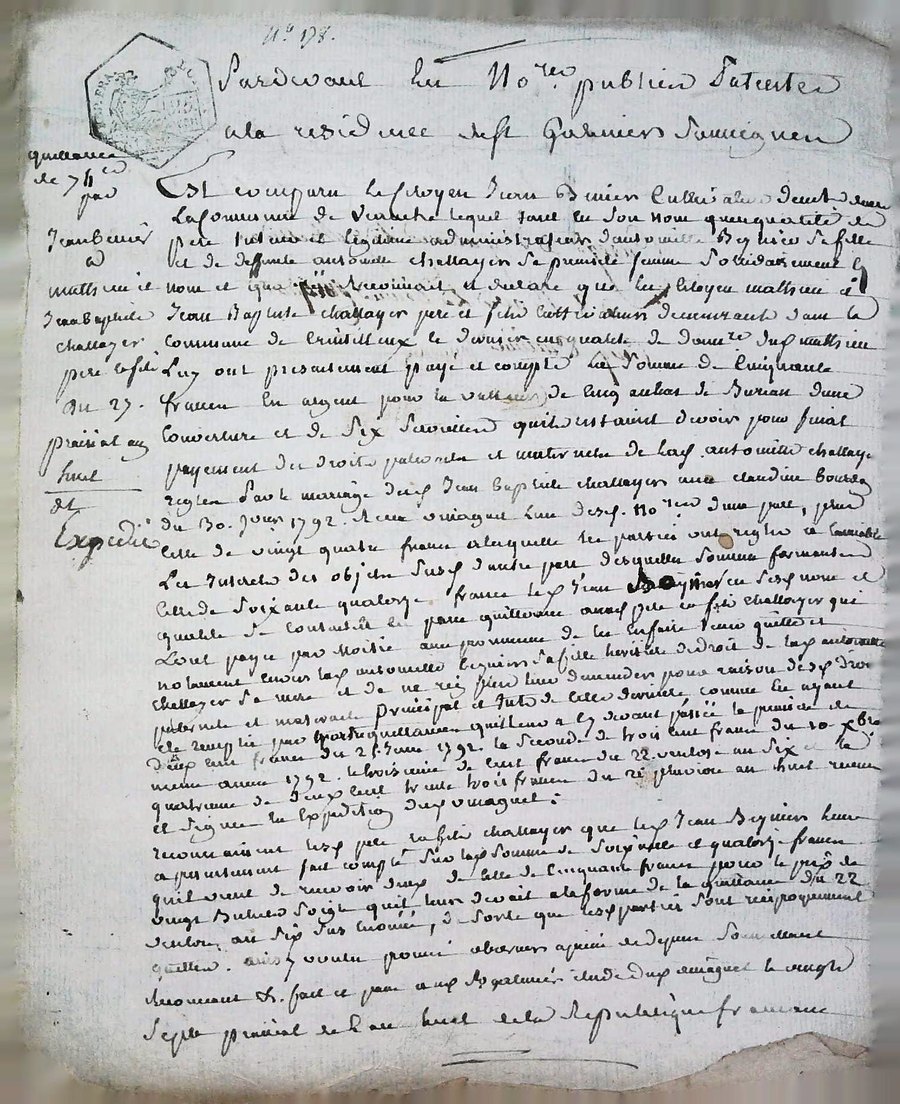 N° 178.
Pardevant les No.res publics Patentés
a la residence de st Galmier soussignés
quittance
de 74 #
par
Jean Benier
a
mathieu et
Jean baptiste
challayer
pere et fils
du 27.
prairial an
huit
Expedié
Est comparu le Citoyen Jean Benier Cultivateur demeurant
la Commune de lequel tant en son nom qu'en qualité de
pere tuteur et legitime administrateur d'antoinette Beynier sa fille
et de deffunte antoinette challayer sa premiere femme solidairement
nom et qualité Reconnait et declare que les Citoyens mathieu et
Jean Baptiste challayer pere et fils Cultivateurs demeurants dans la
Commune de le dernier en qualité de donre dud mathieu
Luy ont presentement payé et compté la somme de Cinquante
francs En argent pour la valleur de Cinq aunes de Bureau d'une
Couverture et de Six Serviettes qu'ils restaient devoir pour final
payement des droits paternels et maternels de lad. antoinette challayer
reglés par le mariage dud Jean Baptiste challayer avec claudine
du 30. Juin 1792. Recu l'un desd. Nores d'une part, plus
celle de vingt quatre francs a laquelle les parties ont reglés a l'amiable
Les Interets des objets susd d'autre part desquelles sommes formantes
celle de Soixante quatorze francs led Jean Beynier en sesd noms et
qualité se contente en passe quittance auxd pere et fils challayer qui
L'ont payé par moitié avec promesse de les En faire tenir quittes et
notament envers lad antoinette Beynier sa fille heritiere de droit de lad antoinette
challayer sa mere et de ne rien plus leur demander pour raison desd droits
paternels et maternels principal et Interets de cette derniere comme En ayant
été remplie par quatre quittances qu'il leur a cy devant passée la premiere de
deux cent francs du 25 Juin 1792. la Seconde de trois cent francs du 10 Xbre
même année 1792. la troisieme de Cent francs du 22 ventose an Six et la
quatrieme de deux cent trente trois francs du pluviose an huit recues
et Signées En Expedition
reconnaissent lesd pere et fils challayer que led Jean Beynier leur
a presentement fait compte Sur lad somme de Soixante et quatorze francs
qu'il vient de recevoir deux de celle de Cinquante francs pour le prix de
vingt Bichets Soigle qu'il leur devait a la forme de la quittance du 22
ventose an Six Sus Enoncée, de Sorte que lesd parties Sont reciproquement
quittes. ainsi voulu promis observer a peine de depens Soumettant
Renonçant &. fait et passé aud St galmier etude dud le vingt
Sept prairial de l'an huit de la Republique francaise